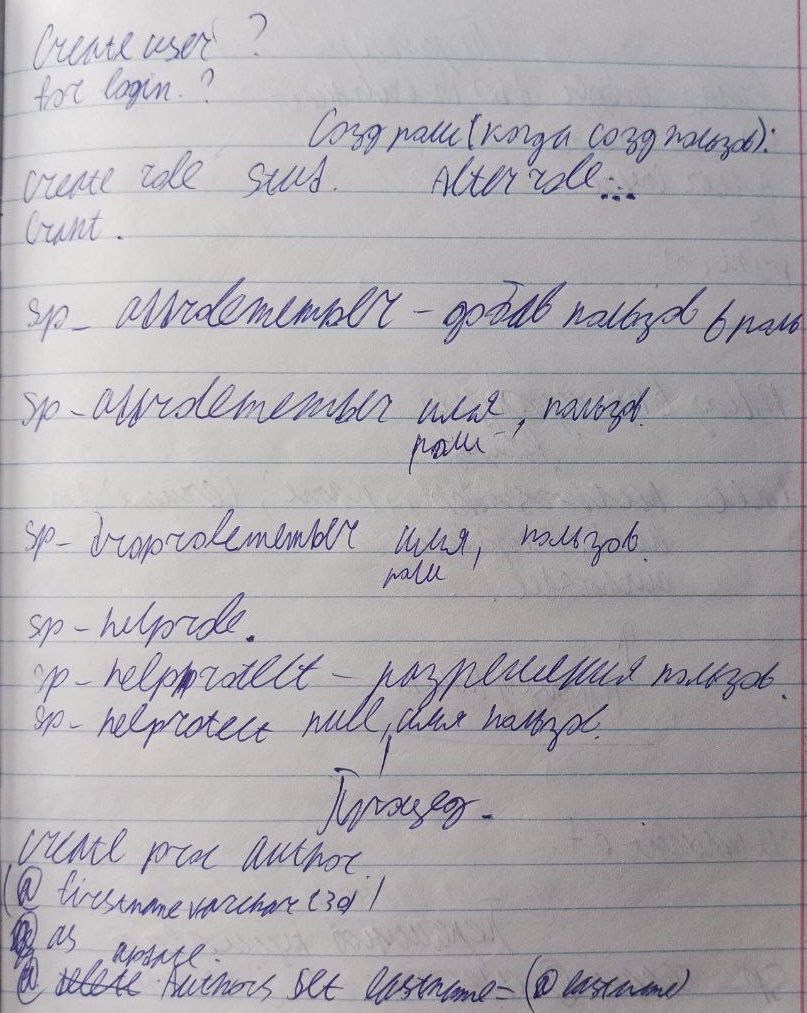 Create user ?
for login. ?
Созд роли (когда созд пользов):
create role stud. Alter role...
Grant.
sp_addrolemember – добав пользов в роль
sp_addrolemember имя роли, пользов.
sp_droprolemember имя роли, пользов.
sp_helprole.
sp_helprotect – разрешения пользов.
sp_helprotect null, имя пользов.
Процед.
create proc author.
(@firstname varchar (30)
as
update.
Authors set lastname=(@lastname)